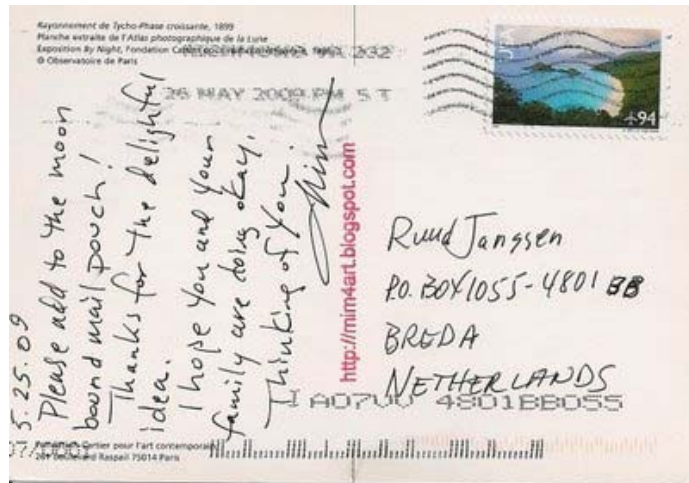 Rayonnement de Tycho-Phase croissante, 1899
Planche extraite de l'Atlas photographique de la Lune
Exposition By Night, Fondation
© Observatoire de Paris
VA 232
26 MAY 2009 PM 5 T
USA
94
5.25.09
Please add to the moon
bound mail pouch!
Thanks for the delightful
idea.
I hope you and your
family are doing okay.
Thinking of you.
Mim
http://mim4art.blogspot.com
Ruud Janssen
P.O. BOX 1055-4801 BB
BREDA
NETHERLANDS
I A07VV 4801BB055
Cartier pour l'art contemporain
261 boulevard Raspail 75014 Paris